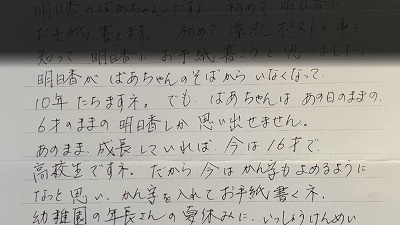 明日香のばあちゃんですよ 初めて明日香に
お手紙書きます。 初めて 漂流ポストの事を
知って 明日香に お手紙書こうと思いました。
明日香が ばあちゃんのそばから いなくなって
10年 たちますネ。 でも、ばあちゃんは あの日のままの、
6才のままの 明日香しか 思い出せません。
あのまま、成長していれば、今は16才で、
高校生ですネ。 だから 今は かん字も よめるように
なったと思い、かん字を入れて お手紙 書くネ。
幼稚園の年長さんの 夏休みに、いっしょうけんめい